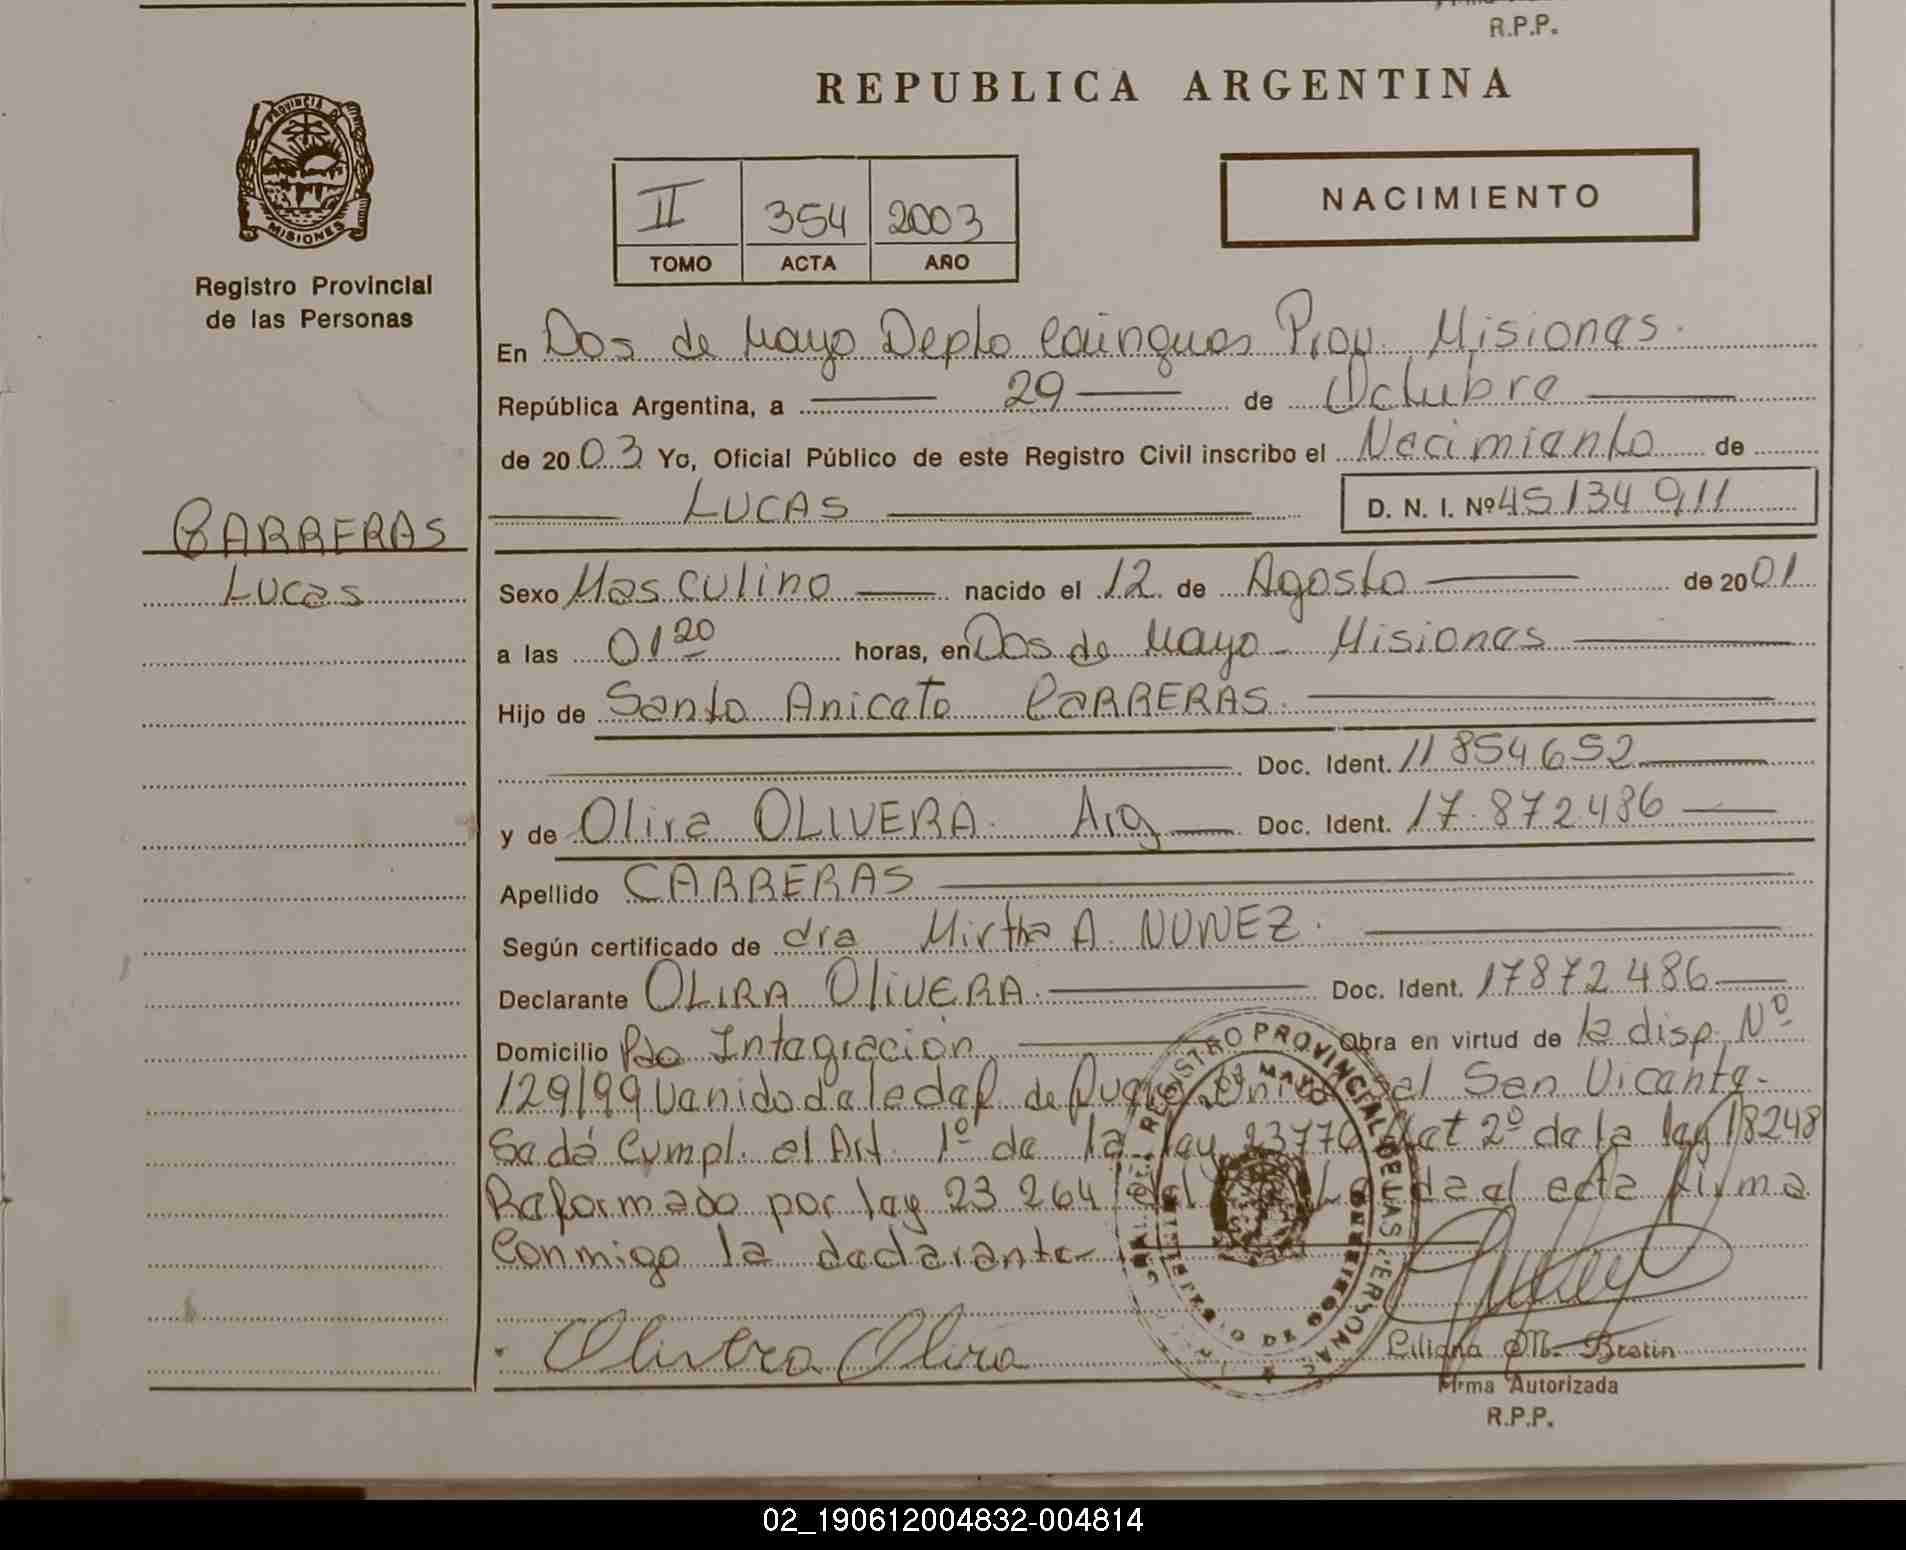 R.P.P.
REPUBLICA ARGENTINA
PROVINCIA DE
MISIONES
Registro Provincial
de las Personas
II 354 2003
TOMO ACTA AÑO
NACIMIENTO
En Dos de Mayo Depto Cainguas Prov. Misiones.
República Argentina, a 29 de Octubre
de 2003 Yo, Oficial Público de este Registro Civil inscribo el Nacimiento de
LUCAS D. N. I. Nº 45134911
CARRERAS
Lucas
Sexo Masculino nacido el 12 de Agosto de 2001
a las 01 20 horas, en Dos de Mayo - Misiones
Hijo de Santo Aniceto CARRERAS.
Doc. Ident. 11854652
y de Olira OLIVERA. Arg Doc. Ident. 17.872486
Apellido CARRERAS
Según certificado de dra Mirtha A. NUNEZ.
Declarante OLIRA OLIVERA. Doc. Ident. 17872486
Domicilio Pdo Integración Obra en virtud de la disp. Nº
129/99 Venido de la de San Vicente-
Se dá Cumpl. el Art. 1º de la ley 23770 Art 2º de la ley 18248
Reformado por ley 23264 acta firma
Conmigo la declarante-
Olivera Olira
REGISTRO PROVINCIAL DE LAS PERSONAS
MINISTERIO DE GOBIERNO
Liliana M. Brotin
Firma Autorizada
R.P.P.
02_190612004832-004814